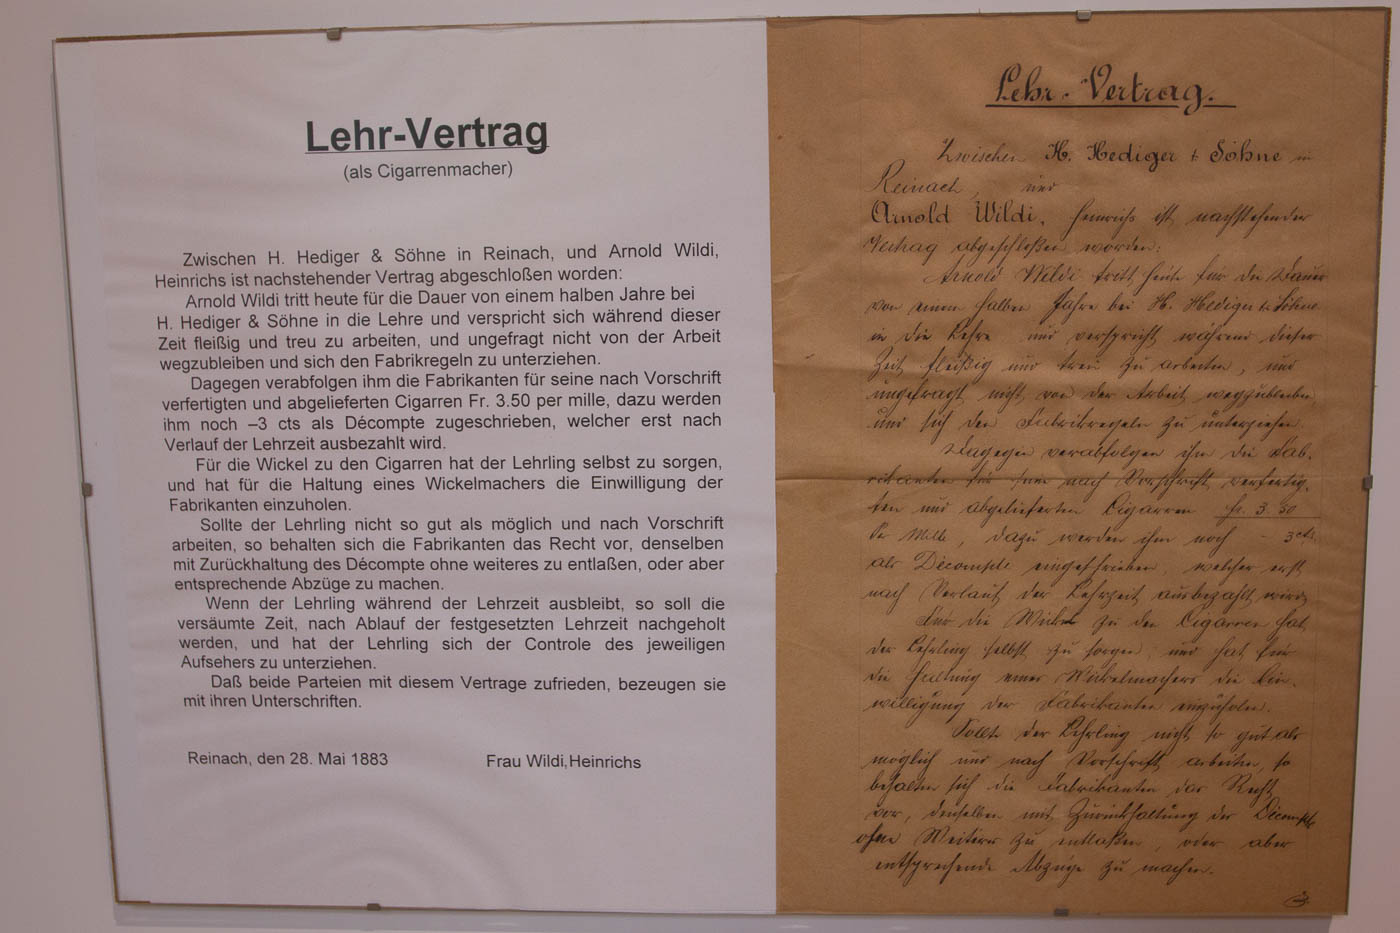 Lehr-Vertrag
(als Cigarrenmacher)
Zwischen H. Hediger & Söhne in Reinach, und Arnold Wildi,
Heinrichs ist nachstehender Vertrag abgeschloßen worden:
Arnold Wildi tritt heute für die Dauer von einem halben Jahre bei
H. Hediger & Söhne in die Lehre und verspricht sich während dieser
Zeit fleißig und treu zu arbeiten, und ungefragt nicht von der Arbeit
wegzubleiben und sich den Fabrikregeln zu unterziehen.
Dagegen verabfolgen ihm die Fabrikanten für seine nach Vorschrift
verfertigten und abgelieferten Cigarren Fr. 3.50 per mille, dazu werden
ihm noch –3 cts als Décompte zugeschrieben, welcher erst nach
Verlauf der Lehrzeit ausbezahlt wird.
Für die Wickel zu den Cigarren hat der Lehrling selbst zu sorgen,
und hat für die Haltung eines Wickelmachers die Einwilligung der
Fabrikanten einzuholen.
Sollte der Lehrling nicht so gut als möglich und nach Vorschrift
arbeiten, so behalten sich die Fabrikanten das Recht vor, denselben
mit Zurückhaltung des Décompte ohne weiteres zu entlaßen, oder aber
entsprechende Abzüge zu machen.
Wenn der Lehrling während der Lehrzeit ausbleibt, so soll die
versäumte Zeit, nach Ablauf der festgesetzten Lehrzeit nachgeholt
werden, und hat der Lehrling sich der Controle des jeweiligen
Aufsehers zu unterziehen.
Daß beide Parteien mit diesem Vertrage zufrieden, bezeugen sie
mit ihren Unterschriften.
Reinach, den 28. Mai 1883 Frau Wildi,Heinrichs
Lehr-Vertrag.
Zwischen H. Hediger & Söhne in
Reinach, und
Arnold Wildi, Heinrichs ist nachstehender
Vertrag abgeschloßen worden:
Arnold Wildi tritt heute für die Dauer
von einem halben Jahre bei H. Hediger & Söhne
in die Lehre und verspricht während dieser
Zeit fleißig und treu zu arbeiten, und
ungefragt nicht von der Arbeit wegzubleiben
und sich den Fabrikregeln zu unterziehen.
Dagegen verabfolgen ihm die Fab-
rikanten für seine nach Vorschrift verfertig-
ten und abgelieferten Cigarren fr. 3.50
per Mille, dazu werden ihm noch - 3 cts
als Décompte eingeschrieben, welcher erst
nach Verlauf der Lehrzeit ausbezahlt wird.
Für die Wickel zu den Cigarren hat
der Lehrling selbst zu sorgen, und hat für
die Haltung eines Wickelmachers die Ein-
willigung der Fabrikanten einzuholen.
Sollte der Lehrling nicht so gut als
möglich und nach Vorschrift arbeiten, so
behalten sich die Fabrikanten das Recht
vor, denselben mit Zurückhaltung des Décompte
ohne Weiteres zu entlaßen, oder aber
entsprechende Abzüge zu machen.